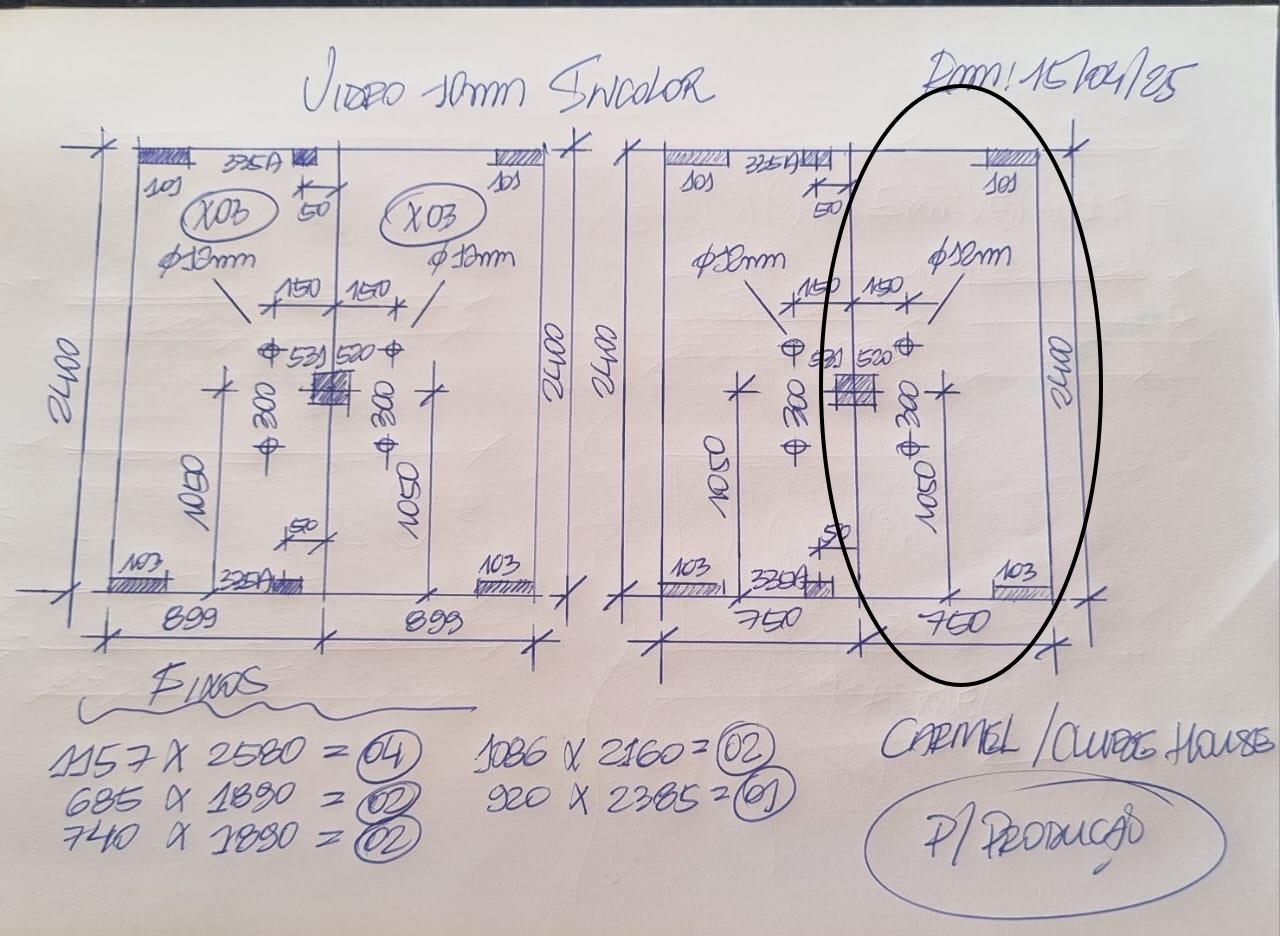 VIDRO 10mm INCOLOR
Dmm: 15/04/25
101 335A 101 101 335A 101
X03 50 X03 50
φ12mm φ12mm φ12mm φ12mm
150 150 150 150
531 520 531 520
2400 300 300 2400 2400 300 300 2400
1050 1050 1050 1050
50 50
103 335A 103 103 335A 103
899 899 750 750
FIXOS
1157 X 2580 = 04
685 X 1890 = 02
740 X 1890 = 02
1086 X 2160 = 02
920 X 2385 = 01
CARMEL / CLUBE HOUSE
P/ PRODUÇÃO